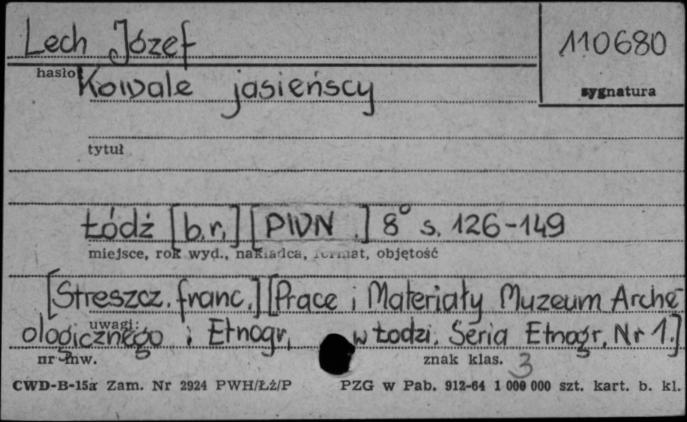 Lech Józef
110680
hasło
Kowale jasieńscy
sygnatura
tytuł
Łódź [b.r.] [PWN .] 8° s. 126-149
miejsce, rok wyd., nakładca, format, objętość
[Streszcz. franc.] [Prace i Materiały Muzeum Arche-
uwagi:
ologicznego i Etnogr. w Łodzi, Seria Etnogr. Nr 1.]
nr inw.
znak klas. 3
CWD-B-15a Zam. Nr 2924 PWH/Łż/P PZG w Pab. 912-64 1 000 000 szt. kart. b. kl.